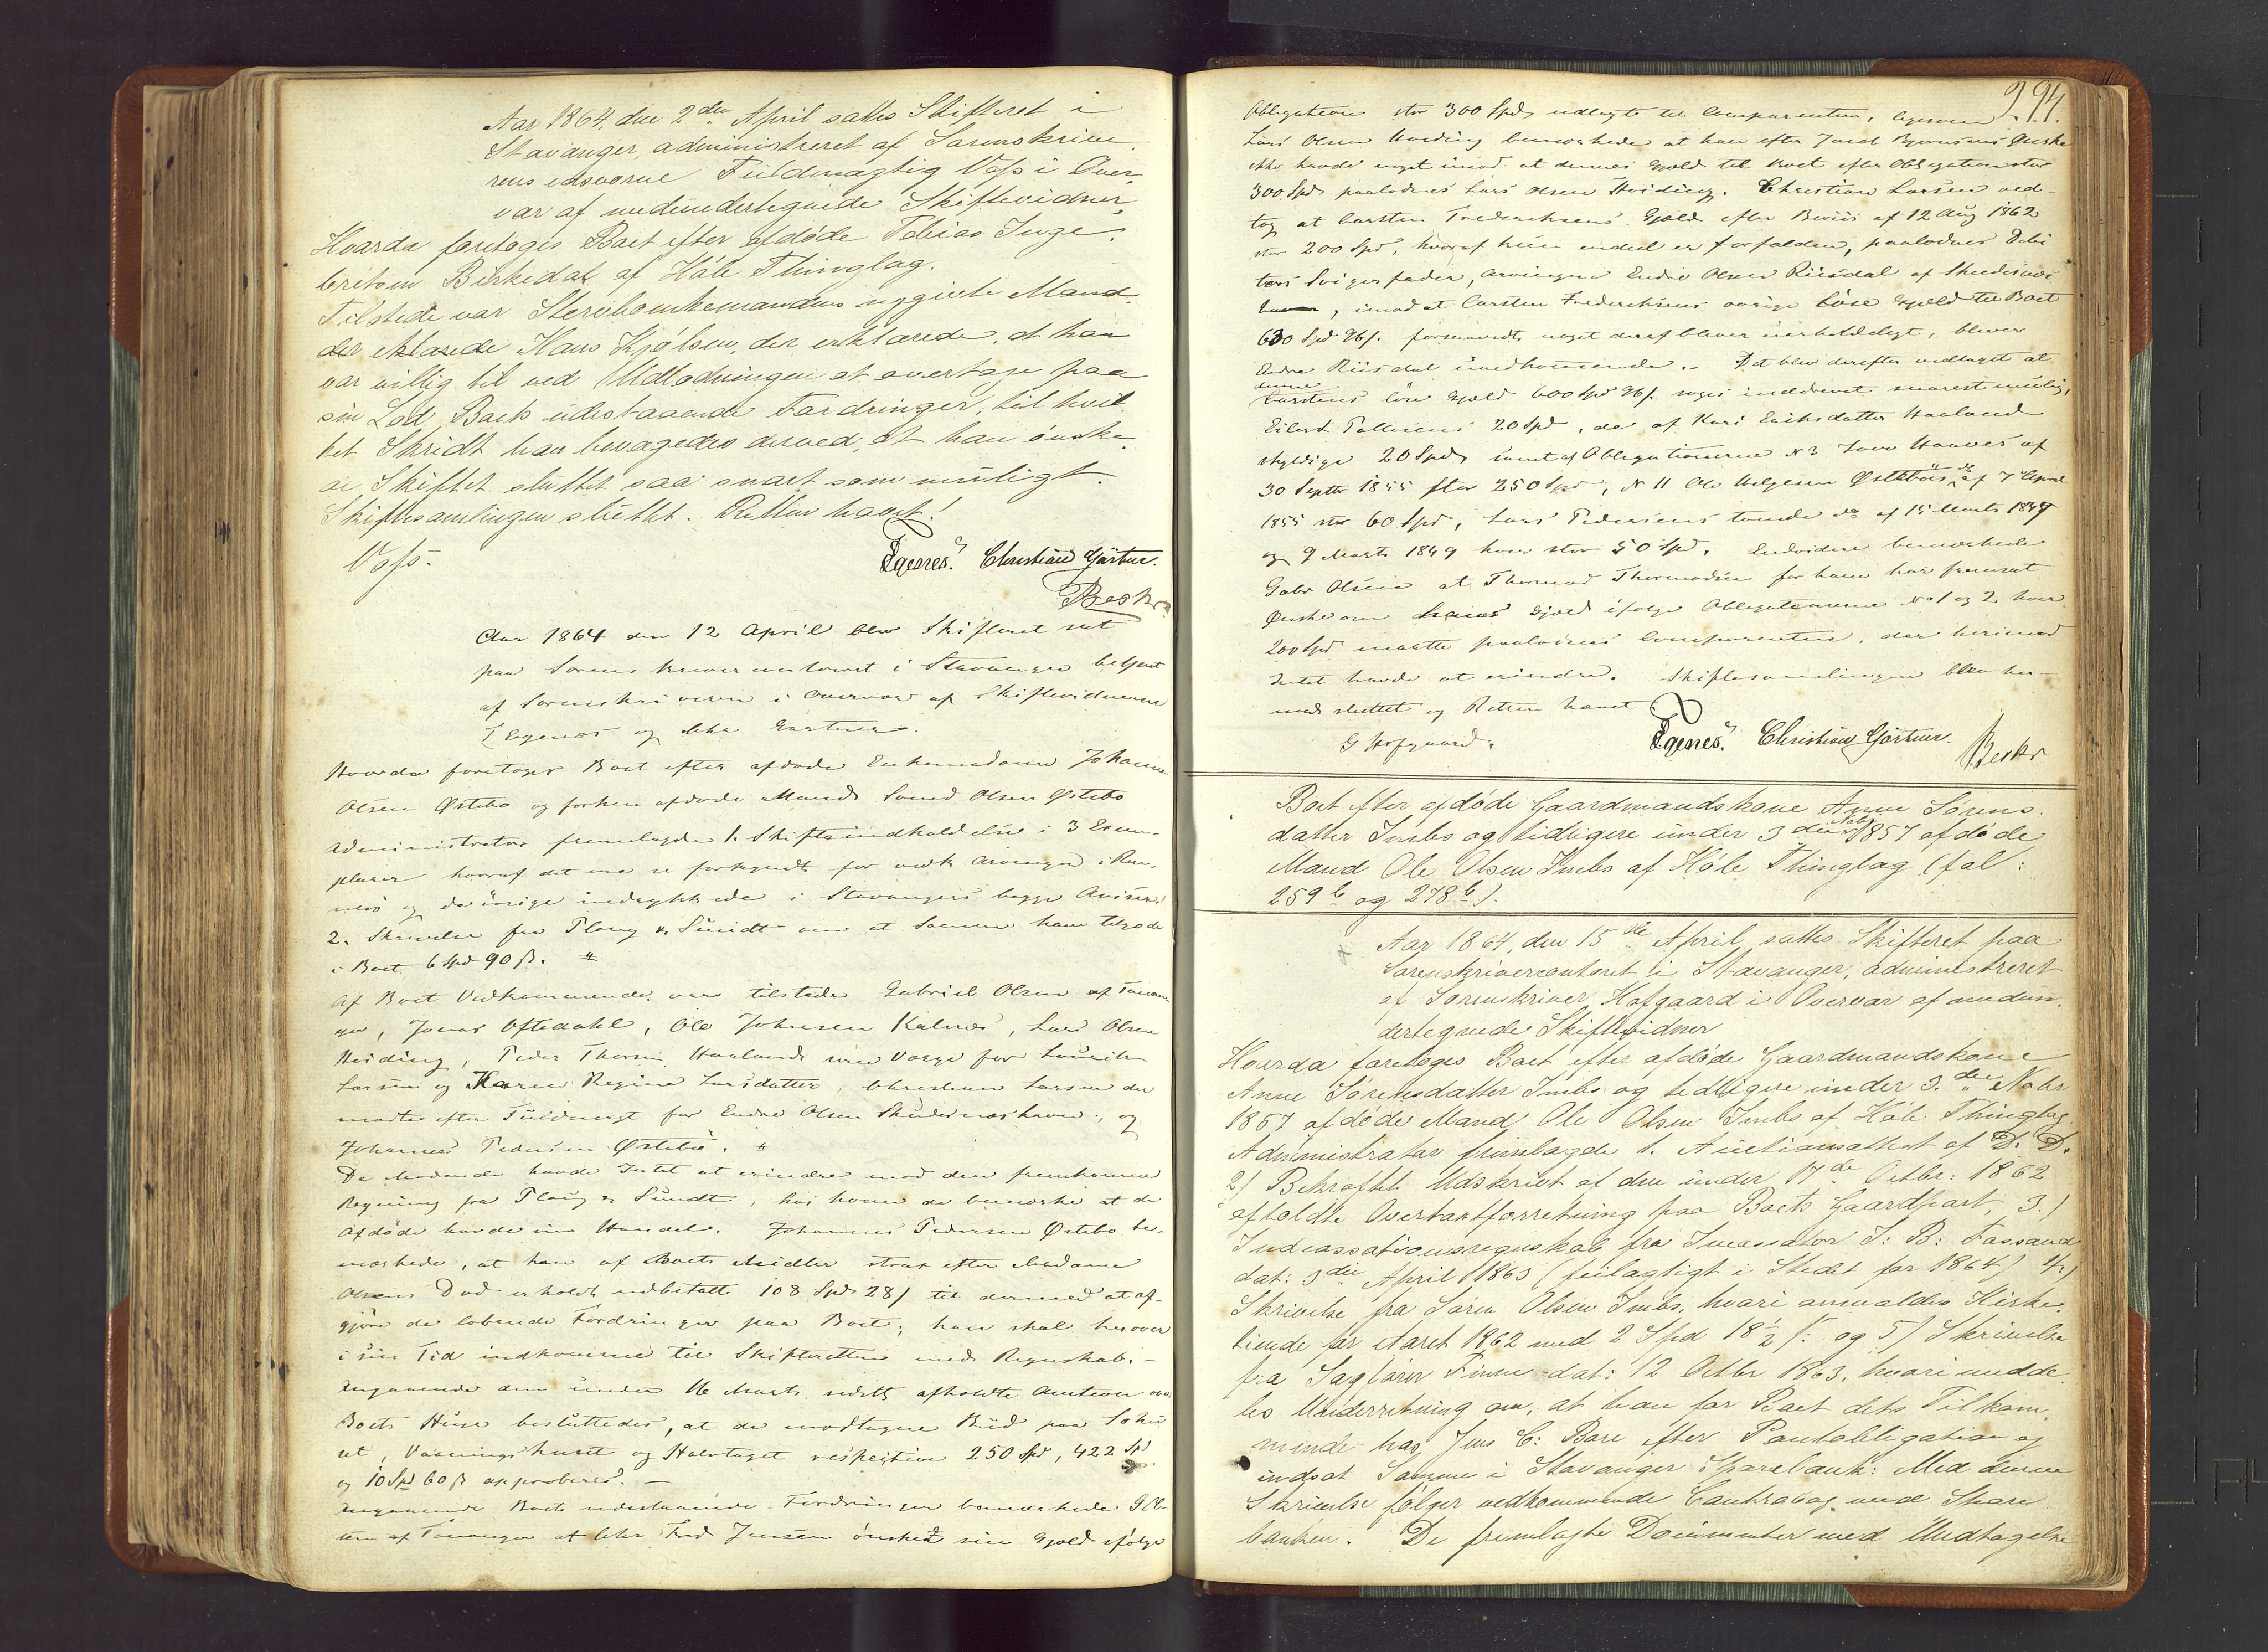 Aar 1864, den 2den April sattes Skifteret i
Stavanger, administreret af Sorenskrive-
rens edsvorne Fuldmægtig Voss i Over-
vær af medundertegnede Skiftevidner.
Hvorda foretoges Boet efter afdøde Tobias Inge-
bretsen Birkedal af Høle Thinglag.
Tilstede var Stervboenkemandens nygivte Mand
der erklærede Hans Kjølsen, der erklærede, at han
var villig til ved Udlodningen at overtage paa
sin Lod Boets udestaaende Fordringer, til hvil-
ket Skridt han bevægedes derved, at han ønske-
de Skiftet sluttet saa snart som muligt.
Skiftesamlingen sluttet. Retten hævet!
Voss.
Egenes. Christian Gärtner.
Beskr
Aar 1864 den 12 April blev Skifteret sat
paa Sorenskrivercontoret i Stavanger betjent
af Sorenskriveren i Overvær af Skiftevidnerne
T Egenæs og Chr Gartner.
Hvorda foretoges Boet efter afdøde Enkemadame Johanne
Olsen Østebø og forhen afdøde Mand Svend Olsen Østebø
Administrator fremlagde 1. Skifteindkaldelse i 3 Exem-
plarer hvoraf det ene er forkyndt for endk Arvinger i Ren-
nesø og de øvrige indrykkede i Stavangers begge Aviser.
2. Skrivelse fra Ploug & Sundt om at Samme have tilgode
i Boet 6 Spd 90 β.
Af Boet Vedkommende var tilstede Gabriel Olsen af Tanan-
ger, Jonas Oftedahl, Ole Johnsen Kalnæs, Lars Olsen
Hviding, Peder Thorsen Haaland som Værge for Lauritz
Larsen og Karen Regine Larsdatter, Christian Larsen der
mødte efter Fuldmagt for Endre Olsen Skudesneshavn, og
Johannes Pedersen Østebø.
De Mødende havde Intet at erindre mod den fremkomne
Regning fra Ploug & Sundt, hos hvem de bemærke at de
Afdøde havde sin Handel. Johannes Pedersen Østebø be-
mærkede, at han af Boets Midler strax efter Madame
Olsens Død erholdt udbetalt 108 Spd 28 β til dermed at af-
gjøre de løbende Fordringer paa Boet; han skal herover
i sin Tid indkomme til Skifteretten med Regnskab. –
Angaaende den under 16 Marts sidstl afholdte Auction over
Boets Huse besluttedes, at de modtagne Bud paa Søhu-
set, Vaaningshuset og Halvtaget respective 250 Spd, 422 Spd
og 10 Spd 60 β approberes. –
Angaaende Boets udestaaende Fordringer bemærkede G Ol-
sen af Tananger at Chr Fred Jensen ønsked sin Gjæld ifølge
294.
Obligation stor 300 Spd udlagte til Comparenten, ligesom
Lars Olsen Hviding bemærkede at han efter Jacob Bjørnsens Ønske
ikke havde noget imod at dennes Gjæld til Boet efter Obligation stor
300 Spd paalodnes Lars Olsen Hviding. Christian Larsen ved-
tog at Carsten Frederiksens Gjæld efter Beviis af 12 Aug 1862
stor 200 Spd, hvoraf kun endeel er forfalden, paalodnes Debi-
tors Svigerfader, Arvingen Endre Olsen Riisdal af Skudesnæs
, imod at Carsten Frederiksens øvrige løse Gjæld til Boet
600 Spd 96 β. forsaavidt noget deraf bliver uerholdeligt, bliver
Endre Riisdal uvedkommende. – Det blev derefter vedtaget at
denne
Carstens løse Gjæld 600 Spd 96 β. søges inddrevet snarest mulig,
Eilert Tollesens 20 Spd, de af Kari Eriksdatter Haaland
skyldige 20 Spd samt af Obligationerne N 3 Haaver af
30 Septbr 1855 stor 250 Spd, N 11 Ole Helgesen Østebøes do af 7 April
1855 stor 60 Spd, Lars Pedersens tvende do af 15 Marts 1849
og 9 Marts 1849 hver stor 50 Spd. Endvidere bemærkede
Gabr Olsen at Thormod Thormodsen for ham har fremsat
Ønske om hans Gjæld ifølge Obligationerne No 1 og 2 hver
200 Spd maatte paalodnes Comparenten, der herimod
Intet havde at erindre. Skiftesamlingen blev her-
med sluttet og Retten hævet
G Hofgaard.
Egenes. Christian Gärtner.
Beskr
Boet efter afdøde Gaardmandskone Anne Sørens-
datter Imbs og tidligere under 3die Novbr 1857 afdøde
Mand Ole Olsen Imbs af Høle Thinglag (fol:
259 b og 278 b).
Aar 1864, den 15de April sattes Skifteret paa
Sorenskrivercontoret i Stavanger, administreret
af Sorenskriver Hofgaard i Overvær af medun-
dertegnede Skiftevidner
Hvorda foretoges Boet efter afdøde Gaardmandskone
Anne Sørensdatter Imbs og tidligere under 3die Novbr
1857 afdøde Mand Ole Olsen Imbs af Høle Thinglag
Administrator fremlagde 1. Auctionsattest af D. D.
2) Bekræftet Udskrivt af den under 17de Octbr: 1862
afholdte Overtaxtforretning paa Boets Gaardpart, 3.)
Indcassationsregnskab fra Incassator T: B: Fossand
dat: 3die April 1863 (feilagtigt i Stedet for 1864) 4.)
Skrivelse fra Søren Olsen Imbs, hvori anmeldes Kirke-
tiende for Aaret 1862 med 2 Spd 18½ β: og 5) Skrivelse
fra Sagfører Finne dat: 12 Octbr 1863, hvori medde-
les Underretning om, at han for Boet dets Tilkom-
mende hos Jens C: Bore efter Pantobligation og
indsat Samme i Stavanger Sparebank: Med denne
Skrivelse følger vedkommende Contrabog med Spare
banken. De fremlagte Documenter med Undtagelse